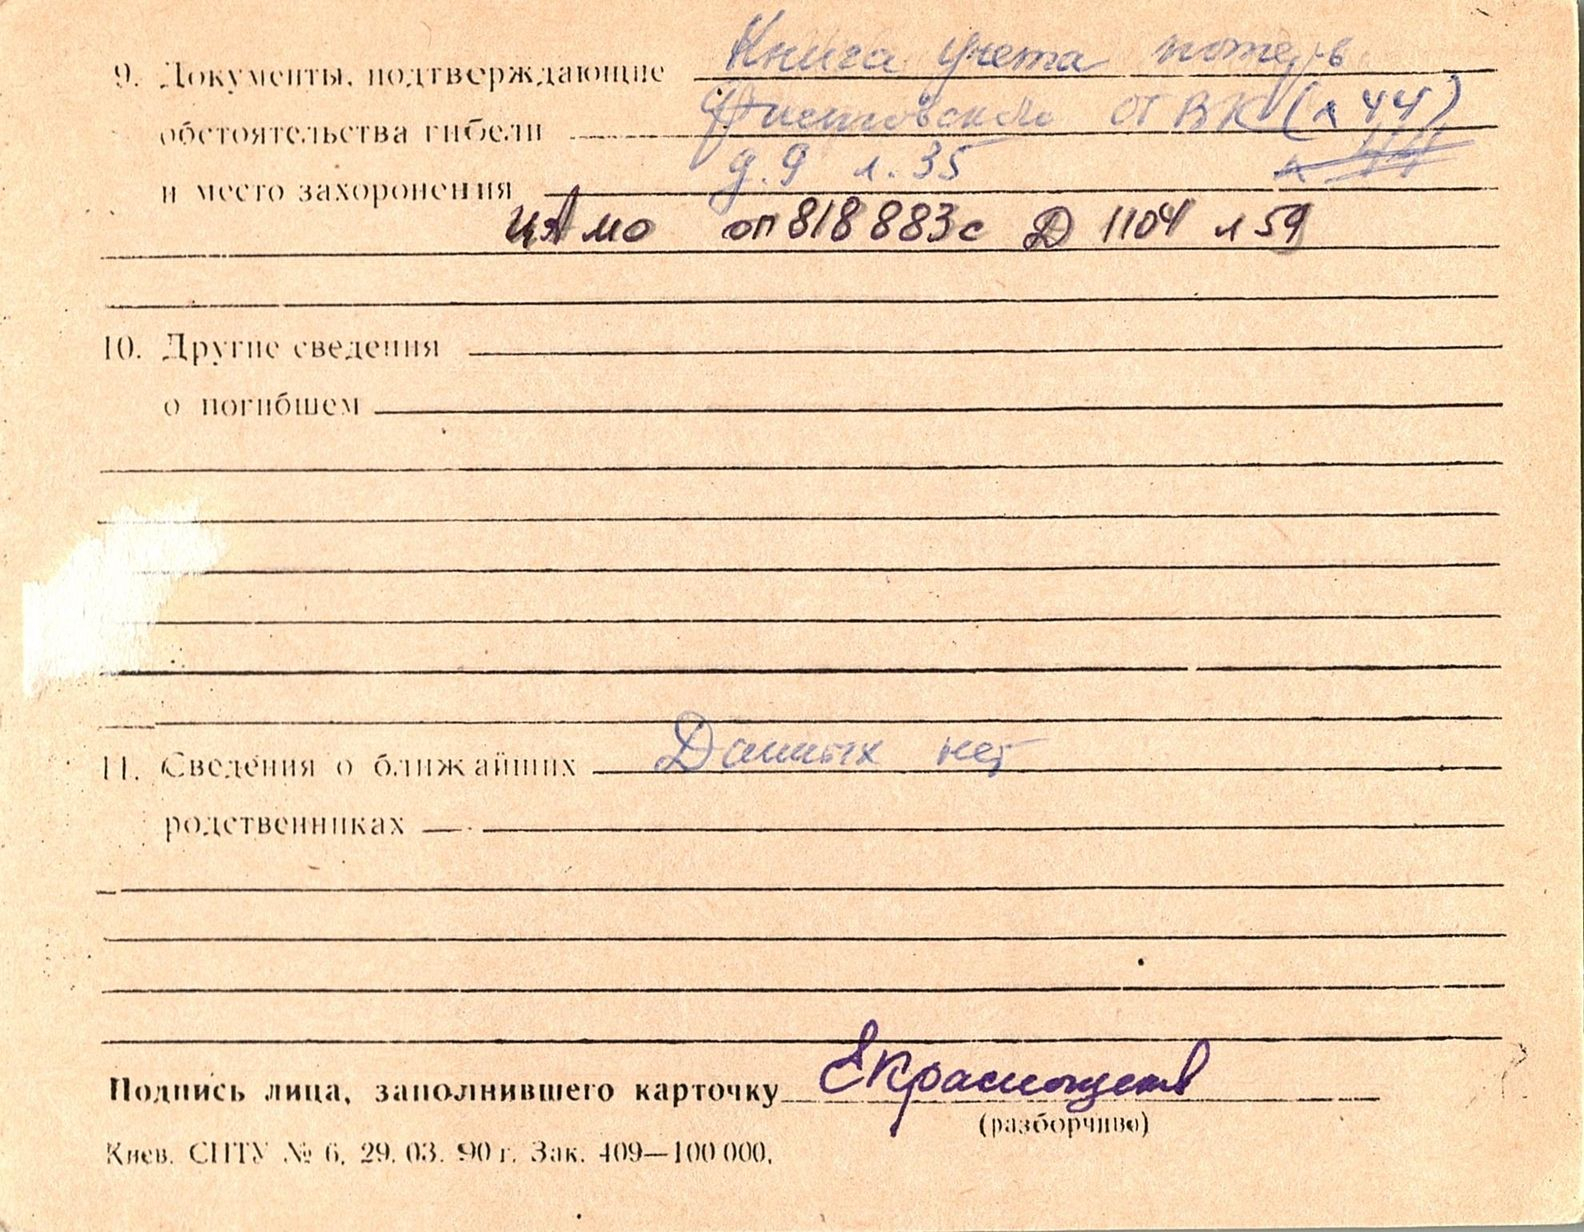 9. Документы, подтверждающие Книга учета потерь
обстоятельства гибели ОГВК (л 44)
и место захоронения д. 9 л. 35
ЦАМО оп 818883с Д 1104 л 59
10. Другие сведения
о погибшем
11. Сведения о ближайших Данных нет
родственниках
Подпись лица, заполнившего карточку
(разборчиво)
Киев. СПТУ № 6. 29. 03. 90 г. Зак. 409—100 000.